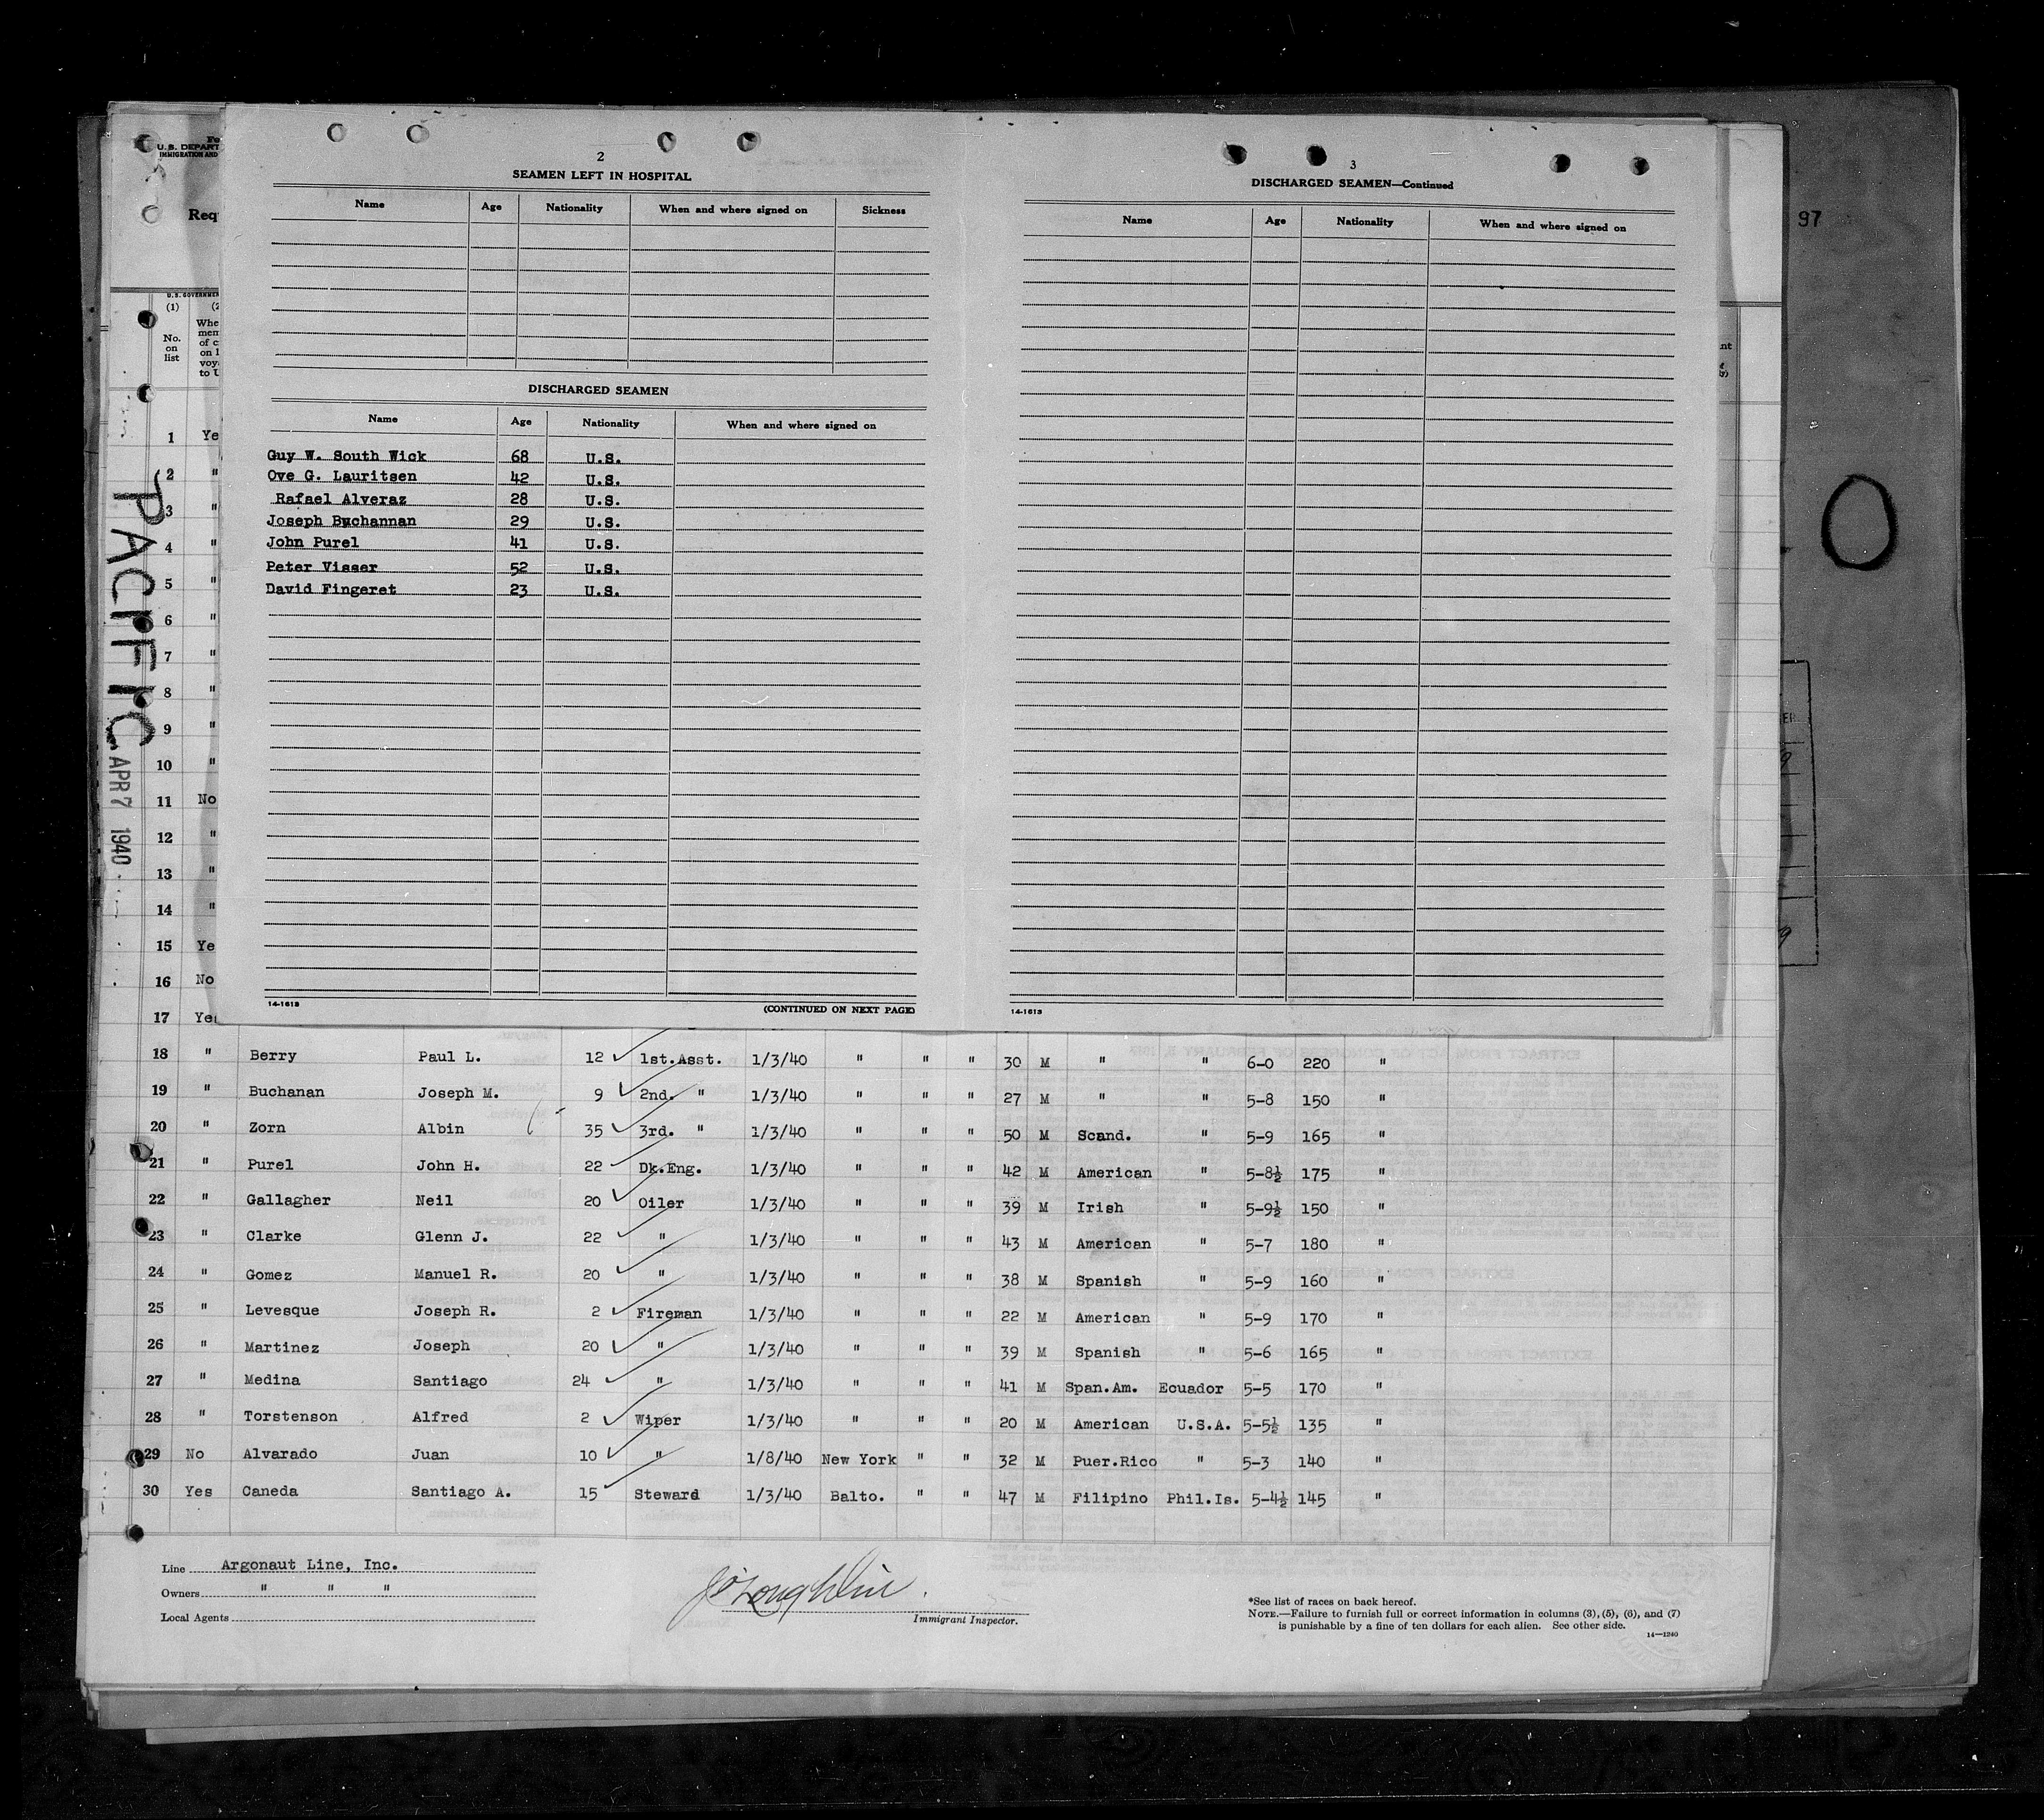 Fo
U.S. DEPART
IMMIGRATION AND
Req
U.S. GOVERNMEN
(1) (2
No. on list
Whe
mem
of c
on l
voy
to U
1 Ye
2 "
3 "
4 "
5 "
6 "
7 "
8 "
9 "
10 "
11 No
12 "
13 "
14 "
15 Ye
16 No
17 Yes
PACIFIC APR 7 1940
2
SEAMEN LEFT IN HOSPITAL
Name Age Nationality When and where signed on Sickness
DISCHARGED SEAMEN
Name Age Nationality When and where signed on
Guy W. South Wick 68 U.S.
Ove G. Lauritsen 42 U.S.
Rafael Alveraz 28 U.S.
Joseph Buchannan 29 U.S.
John Purel 41 U.S.
Peter Visser 52 U.S.
David Fingeret 23 U.S.
14-1613 (CONTINUED ON NEXT PAGE)
3
DISCHARGED SEAMEN—Continued
Name Age Nationality When and where signed on
14-1613
97
O
18 " Berry Paul L. 12 1st.Asst. 1/3/40 " " " 30 M " " 6-0 220 "
19 " Buchanan Joseph M. 9 2nd. " 1/3/40 " " " 27 M " " 5-8 150 "
20 " Zorn Albin 35 3rd. " 1/3/40 " " " 50 M Scand. " 5-9 165 "
21 " Purel John H. 22 Dk.Eng. 1/3/40 " " " 42 M American " 5-8½ 175 "
22 " Gallagher Neil 20 Oiler 1/3/40 " " " 39 M Irish " 5-9½ 150 "
23 " Clarke Glenn J. 22 " 1/3/40 " " " 43 M American " 5-7 180 "
24 " Gomez Manuel R. 20 " 1/3/40 " " " 38 M Spanish " 5-9 160 "
25 " Levesque Joseph R. 2 Fireman 1/3/40 " " " 22 M American " 5-9 170 "
26 " Martinez Joseph 20 " 1/3/40 " " " 39 M Spanish " 5-6 165 "
27 " Medina Santiago 24 " 1/3/40 " " " 41 M Span.Am. Ecuador 5-5 170 "
28 " Torstenson Alfred 2 Wiper 1/3/40 " " " 20 M American U.S.A. 5-5½ 135 "
29 No Alvarado Juan 10 " 1/8/40 New York " " 32 M Puer.Rico " 5-3 140 "
30 Yes Caneda Santiago A. 15 Steward 1/3/40 Balto. " " 47 M Filipino Phil.Is. 5-4½ 145 "
Line Argonaut Line, Inc.
Owners " " "
Local Agents
J O'Loughlin
Immigrant Inspector.
*See list of races on back hereof.
NOTE.—Failure to furnish full or correct information in columns (3), (5), (6), and (7)
is punishable by a fine of ten dollars for each alien. See other side.
14—1240